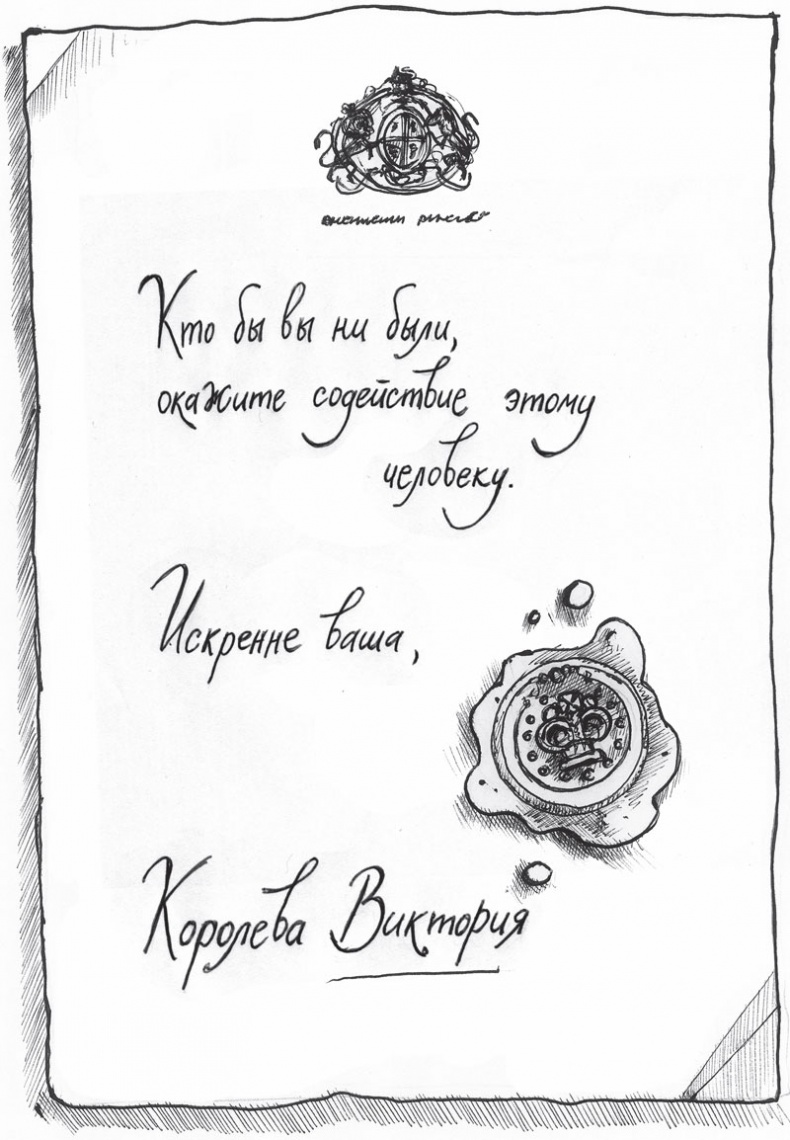 Кто бы вы ни были,
окажите содействие этому
человеку.
Искренне ваша,
Королева Виктория